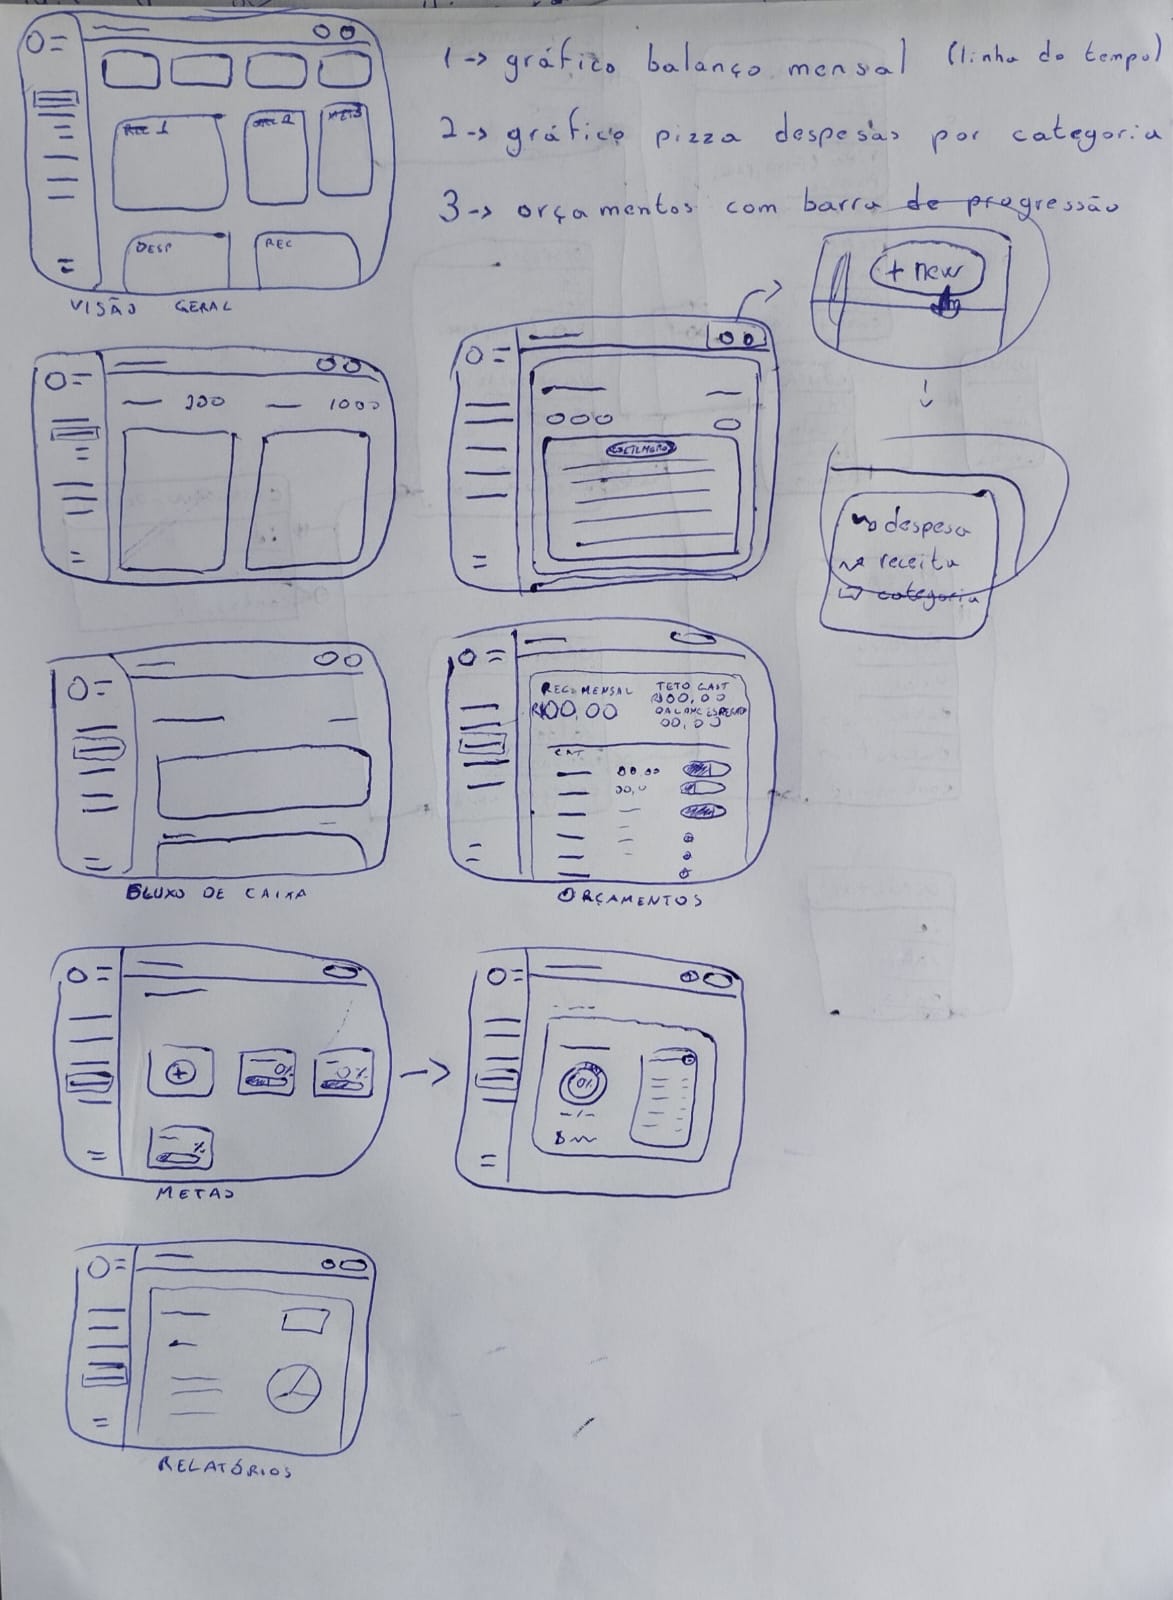 1-> gráfico balanço mensal (linha do tempo)
2-> gráfico pizza despesas por categoria
3-> orçamentos com barra de progressão
DESP
REC
VISÃO GERAL
+ new
200
1000
despesa
receita
categoria
REC. MENSAL
TETO GAST
R$00,00
R$00,00
00,00
CAT.
00,00
00,0
FLUXO DE CAIXA
ORÇAMENTOS
0%
0%
%
0%
METAS
RELATÓRIOS